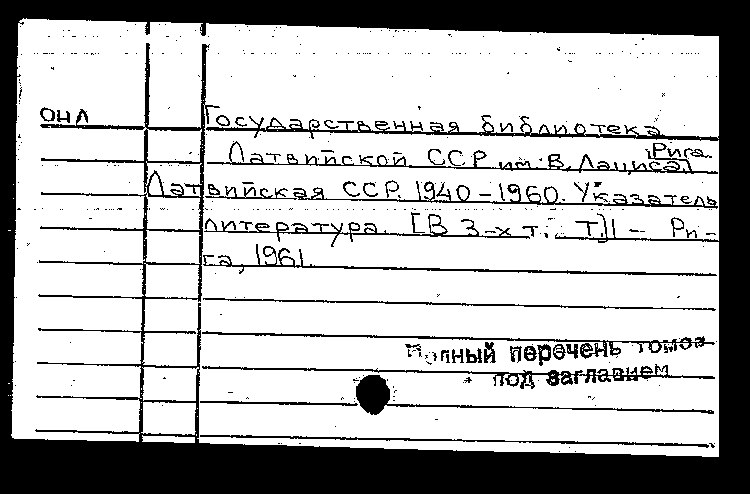 ОНЛ Государственная библиотека
Латвийской ССР им. В. Лациса, Рига.
Латвийская ССР. 1940-1960. Указатель
литература. [В 3-х т. Т.]1 - Ри-
га, 1961.
Полный перечень томов
под заглавием